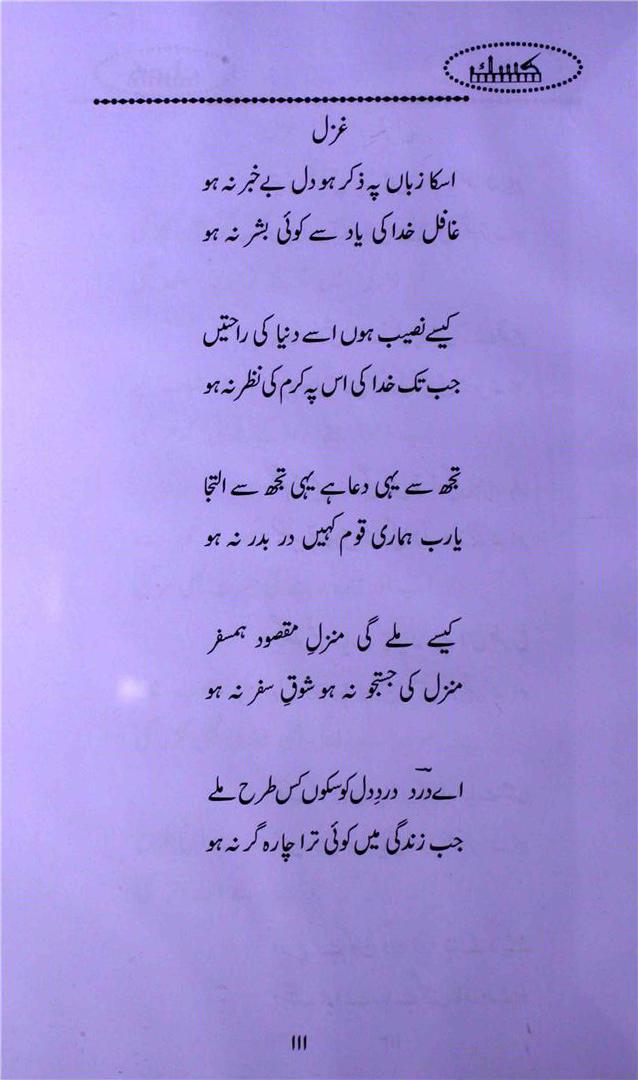 کسک
غزل
اسکا زباں پہ ذکر ہو دل بے خبر نہ ہو
غافل خدا کی یاد سے کوئی بشر نہ ہو
کیسے نصیب ہوں اسے دنیا کی راحتیں
جب تک خدا کی اس پہ کرم کی نظر نہ ہو
تجھ سے یہی دعا ہے یہی تجھ سے التجا
یارب ہماری قوم کہیں در بدر نہ ہو
کیسے ملے گی منزلِ مقصود ہمسفر
منزل کی جستجو نہ ہو شوقِ سفر نہ ہو
اے دردؔ دردِ دل کو سکوں کس طرح ملے
جب زندگی میں کوئی ترا چارہ گر نہ ہو
۱۱۱